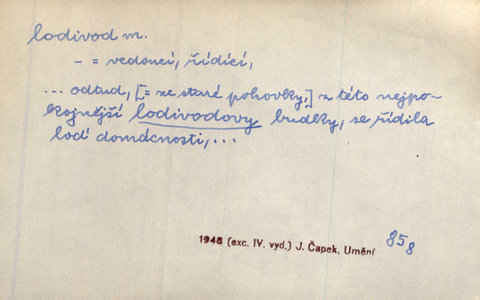 lodivod m.
- = vedoucí, řídící,
... odtud, [= ze staré pohovky,] z této nejpo-
kojnější lodivodovy budky, se řídila
loď domácnosti,...
1948 (exc. IV. vyd.) J. Čapek, Umění
858